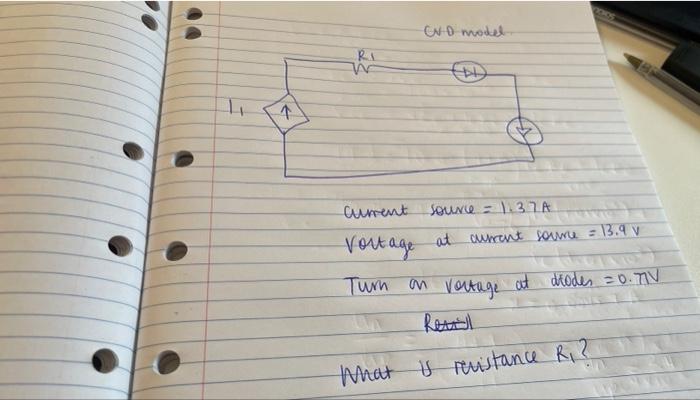 CVD model.
R1
I1
Current source = 1.37A
Voltage at current source = 13.9 V
Turn on voltage at diodes = 0.71V
What is resistance R1?